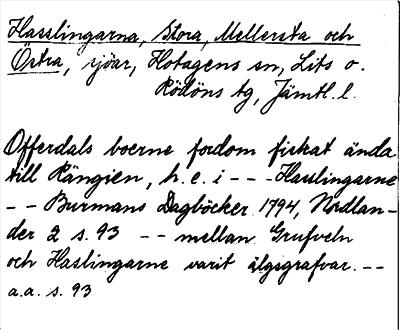 Hasslingarna, Stora, Mellersta och
Östra, sjöar, Hotagens sn, Lits o.
Rödöns tg, Jämtl. l.
Offerdals boerne fordom fiskat ända
till Rängien, h. e. i - - - Hasslingarne
- - Burmans Dagböcker 1794, Nordlan-
der 2 s. 93 -- mellan Grufveln
och Haslingarne varit älgsgrafvar. --
a.a. s. 93